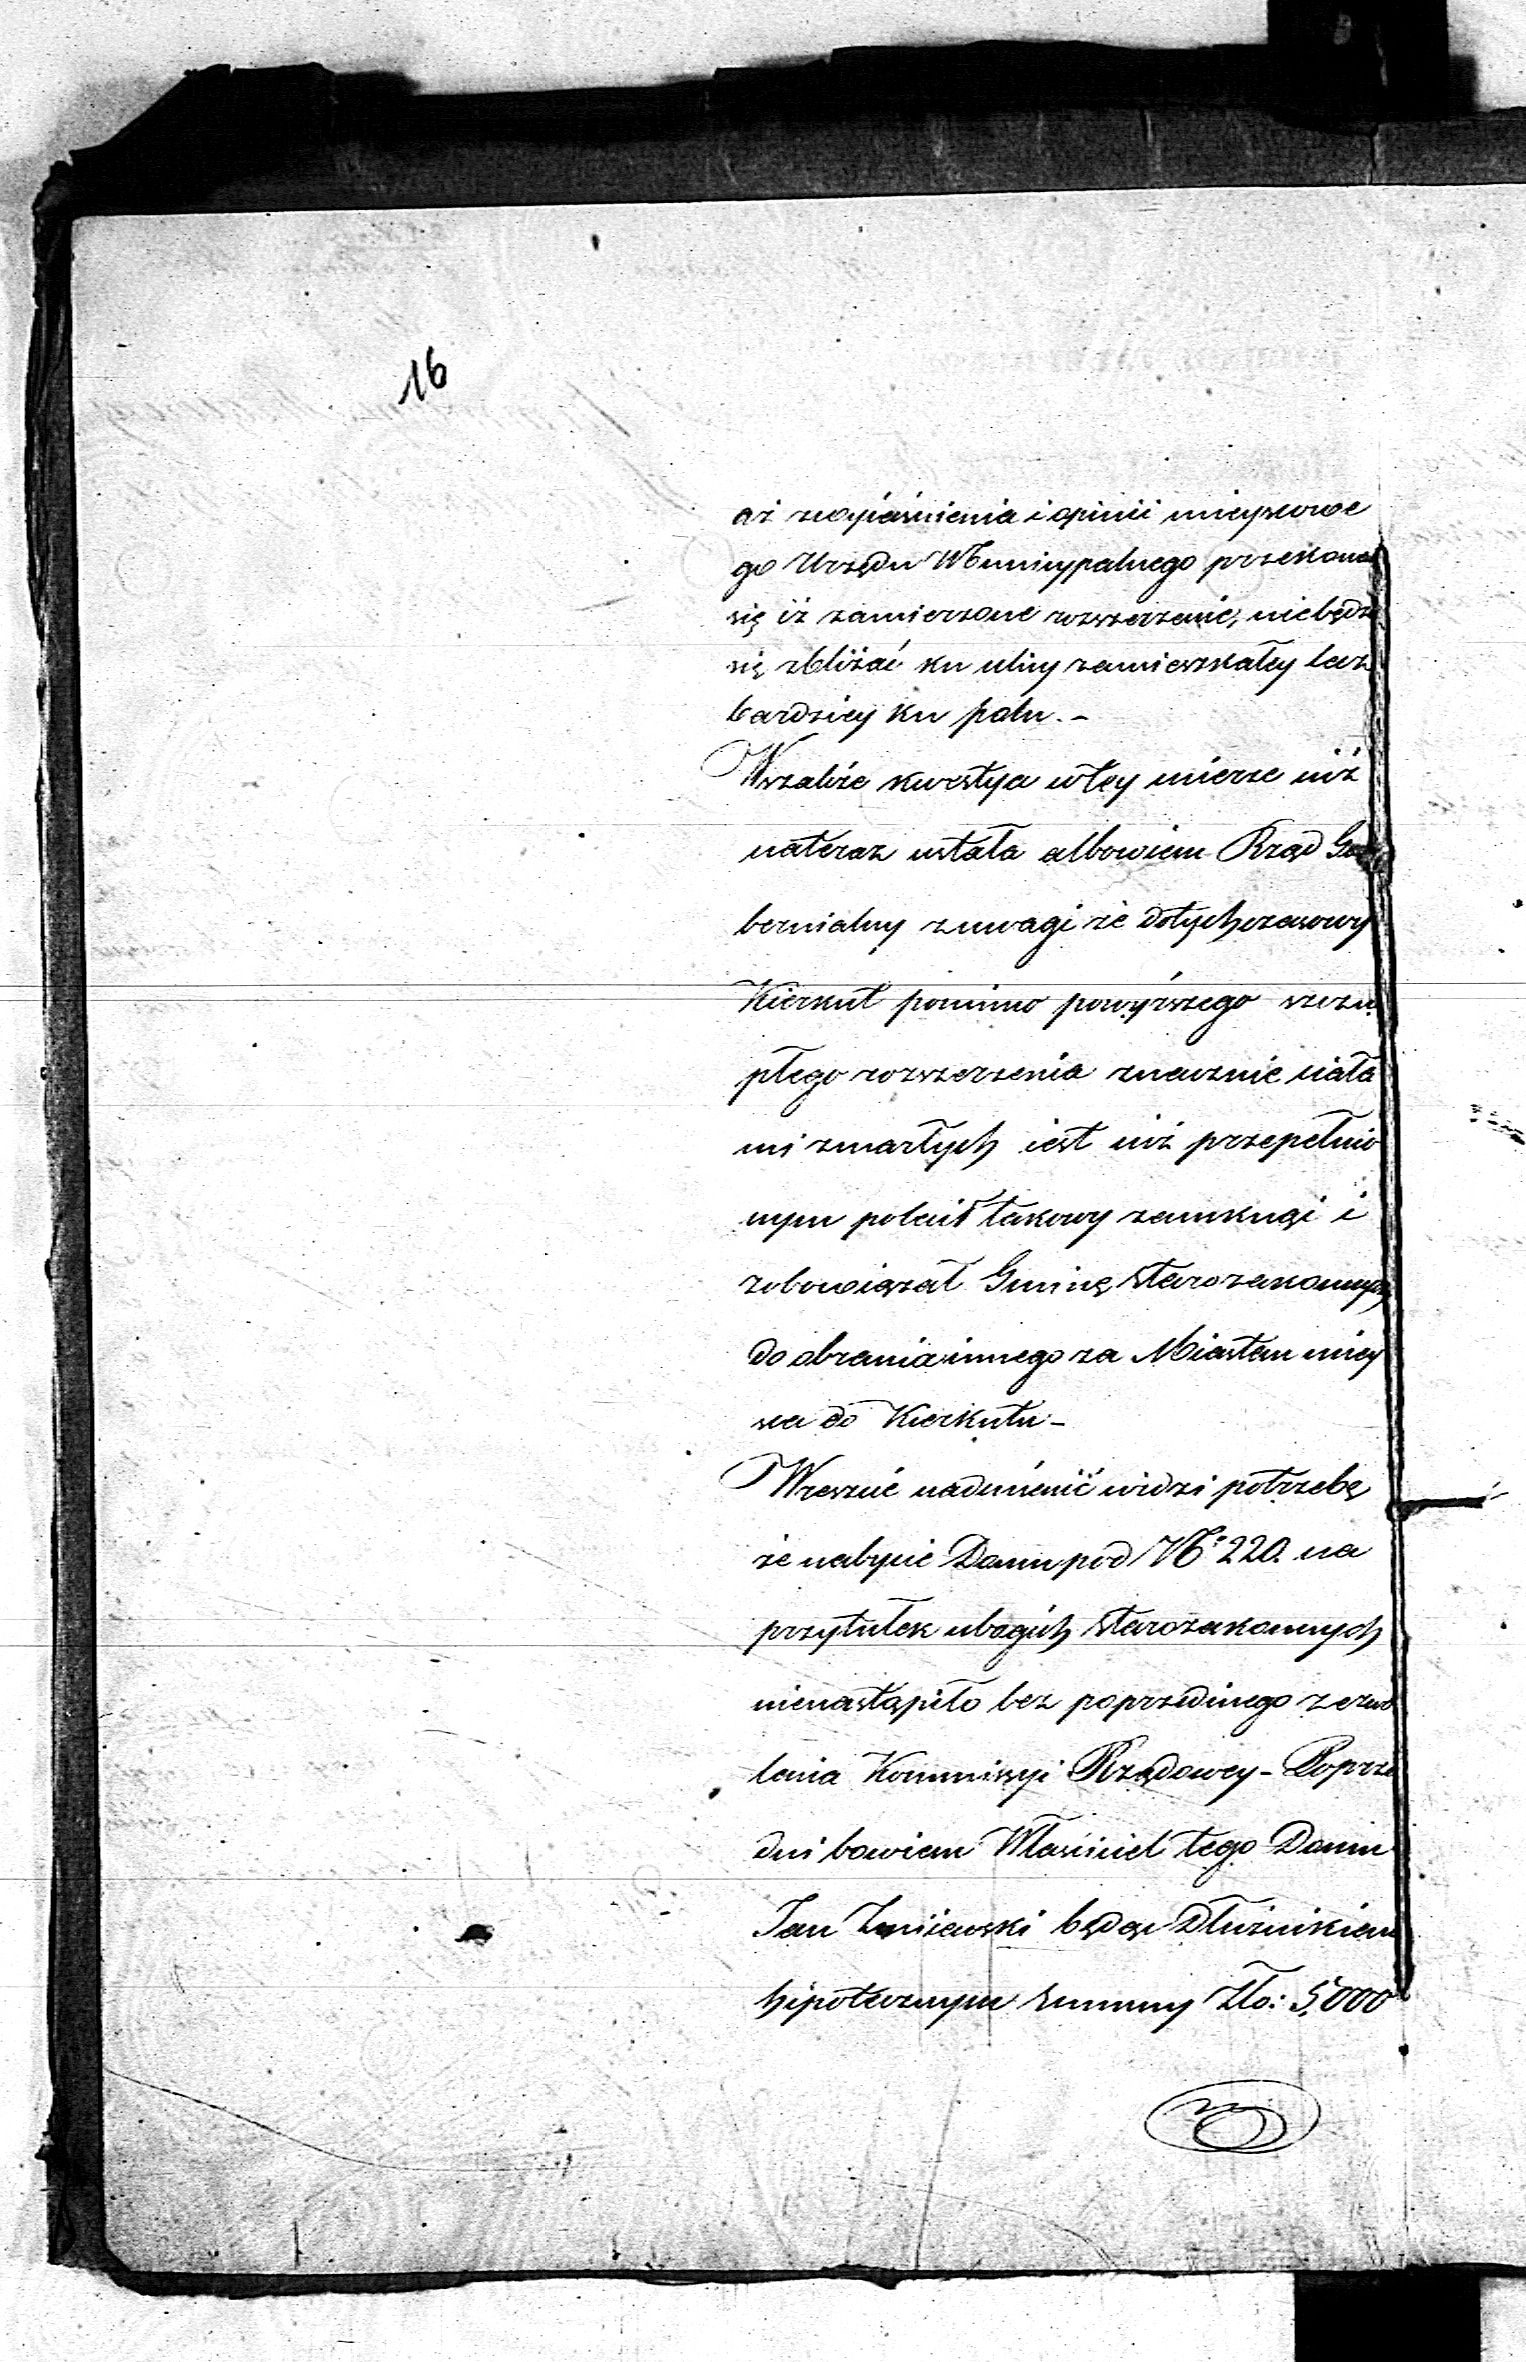 16
aż z wyiaśnienia i opinii mieyscowe
go Urzędu Municypalnego przekonał
się iż zamierzone rozszerzenie, niebędzie
się zbliżać ku ulicy zamieszkałey lecz
bardziey ku polu. -
Wszakże kwestya w tey mierze iuż
nateraz ustała albowiem Rząd Gu
bernialny z uwagi że dotychczasowy
Kierkut pomimo powyższego szczu
płego rozszerzenia znacznie ciała
mi zmarłych iest iuż przepełnio
nym polecił takowy zamknąć i
zobowiązał Gminę starozakonnych
do obrania innego za Miastem miey
sca do Kierkutu -
Wreszcie nadmienić widzi potrzebę
że nabycie Domu pod No 220. na
przytułek ubogich starozakonnych
nienastąpiło bez poprzedniego zezwo
lenia Kommissyi Rządowey - Poprze
dni bowiem Właściciel tego Domu
Jan Żmijewski będąc Dłużnikiem
hipotecznym summy Zło: 5,000